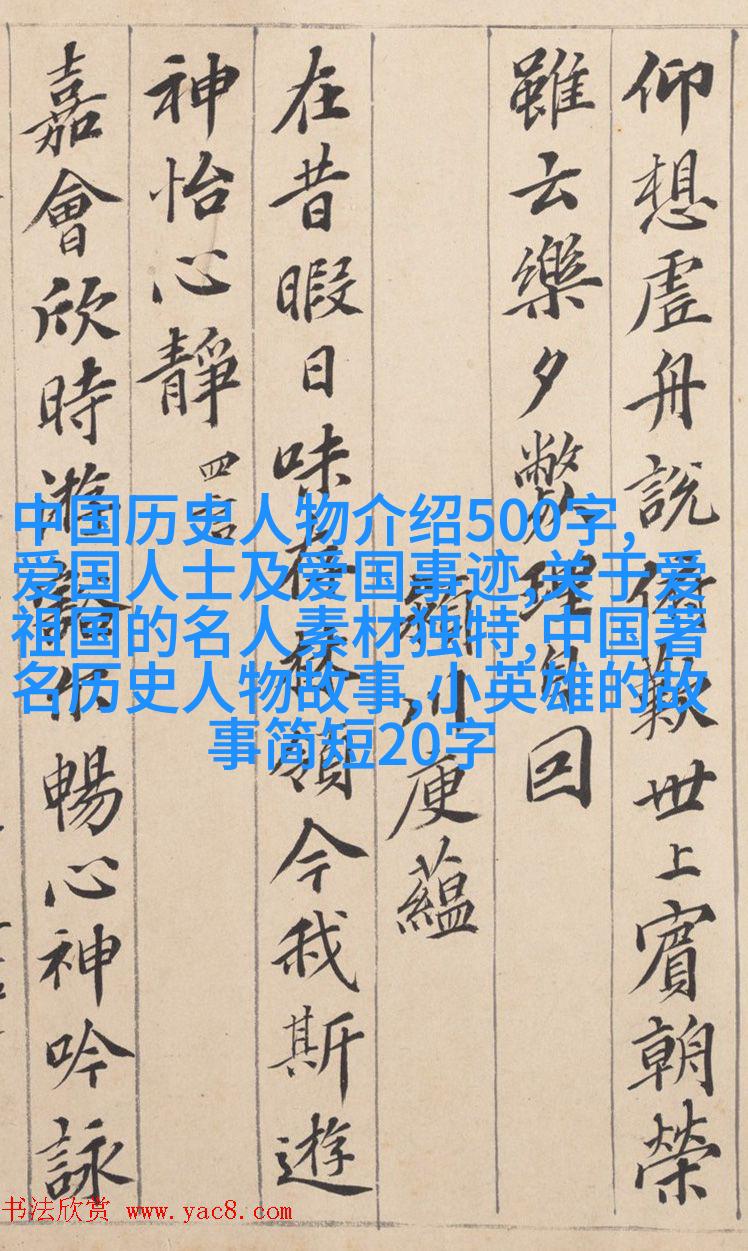 仰想虗舟說俯歎世上賓朝榮
雖云樂夕弊理自回
潁川庾蘊
在昔暇日味存林嶺今我斯遊
神怡心靜 四言
嘉會欣時遊豁尒暢心神吟詠
中国历史人物介绍500字,
爱国人士及爱国事迹,关于爱
祖国的名人素材独特,中国著
名历史人物故事,小英雄的故
事简短20字
书法欣赏 www.yac8.com